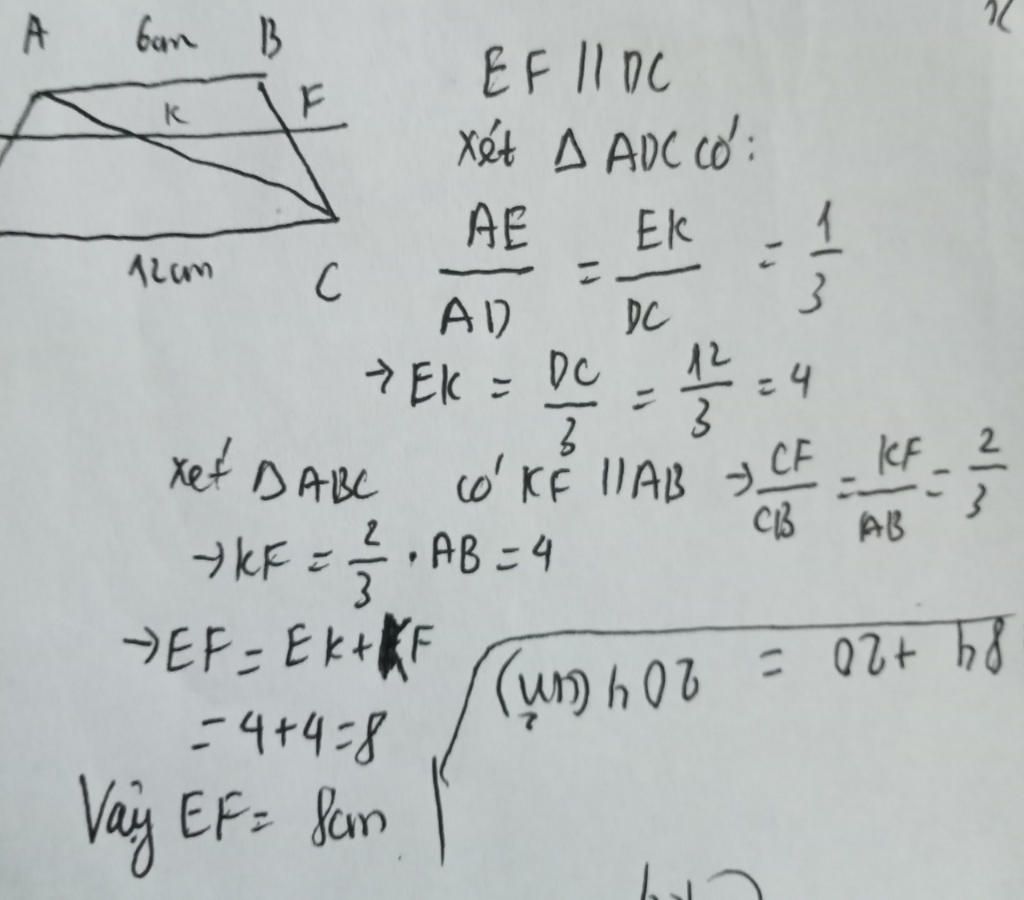 A 6cm B
K F
12cm C
EF // DC
Xét Δ ADC có:
AE/AD = EK/DC = 1/3
→ EK = DC/3 = 12/3 = 4
Xét Δ ABC có KF // AB → CF/CB = KF/AB = 2/3
→ KF = 2/3 . AB = 4
→ EF = EK + KF
= 4 + 4 = 8
Vậy EF = 8cm
84 + 20 = 204 (cm²)